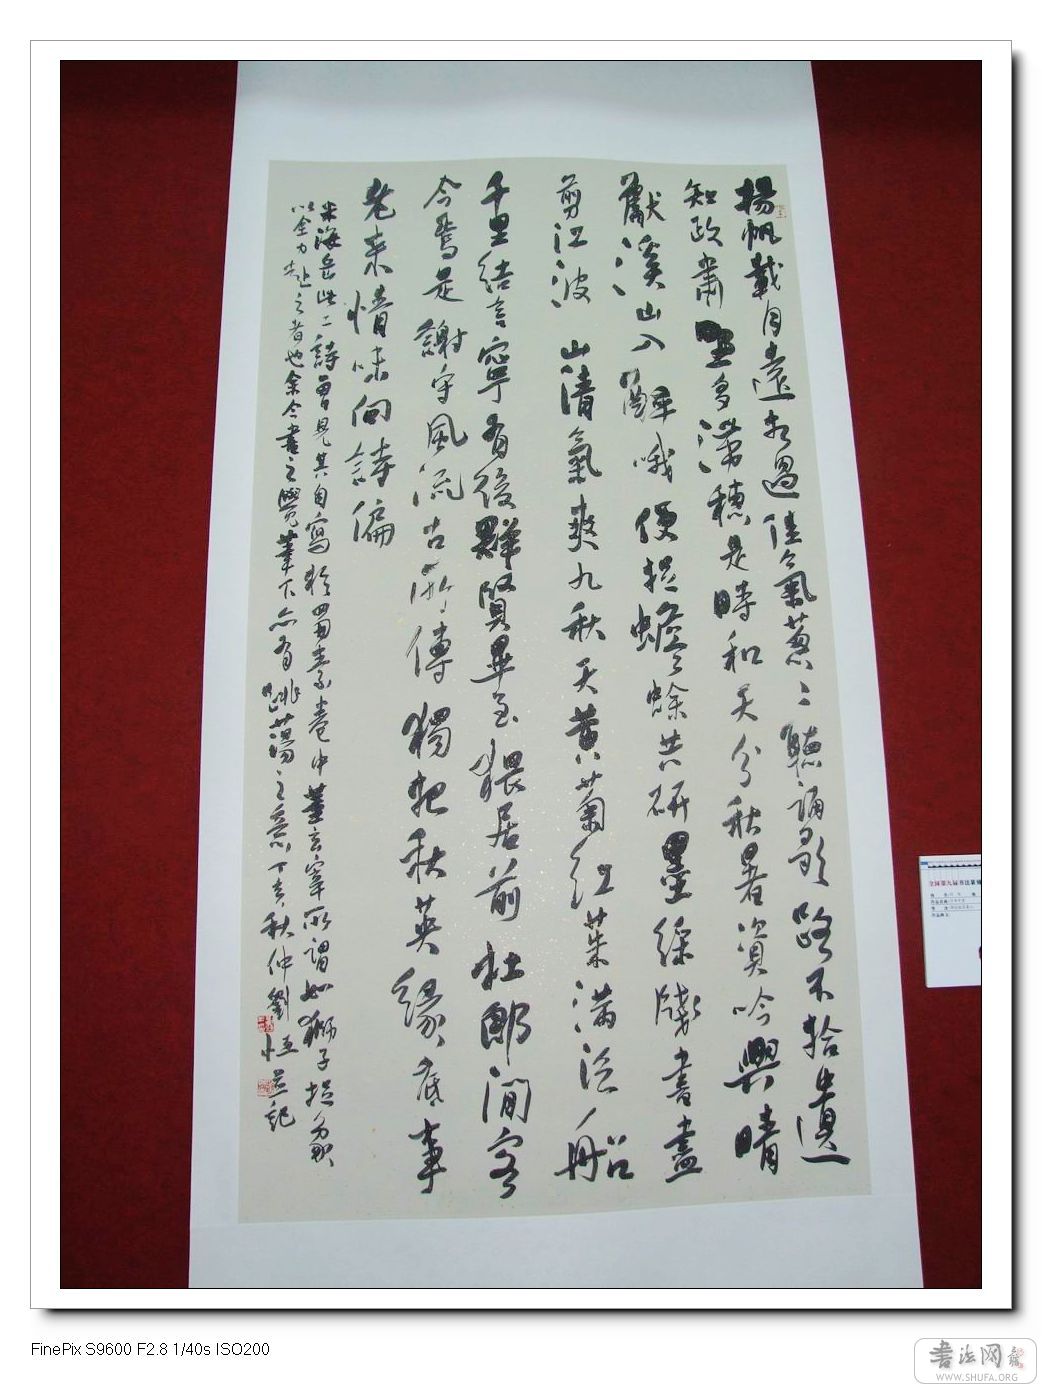 揚帆載月遠相過佳氣葱〻聽誦歌路不拾遺
知政肅野多滯穗是時和天分秋暑資吟興晴
獻溪山入醉哦便捉蟾蜍共研墨綵牋書盡
剪江波 山清氣爽九秋天黃菊紅茱滿泛船
千里結言寧有後群賢畢至猥居前杜郎閒客
今焉是謝守風流古所傳獨把秋英緣底事
老來情味向詩偏
米海岳此二詩曾見其自寫於蜀素卷中董玄宰所謂如獅子捉象
以全力赴之者也余今書之覺筆下亦有跳蕩之意丁亥秋仲劉恒并記
全国第九届书法篆刻
FinePix S9600 F2.8 1/40s ISO200
書法网
WWW.SHUFA.ORG